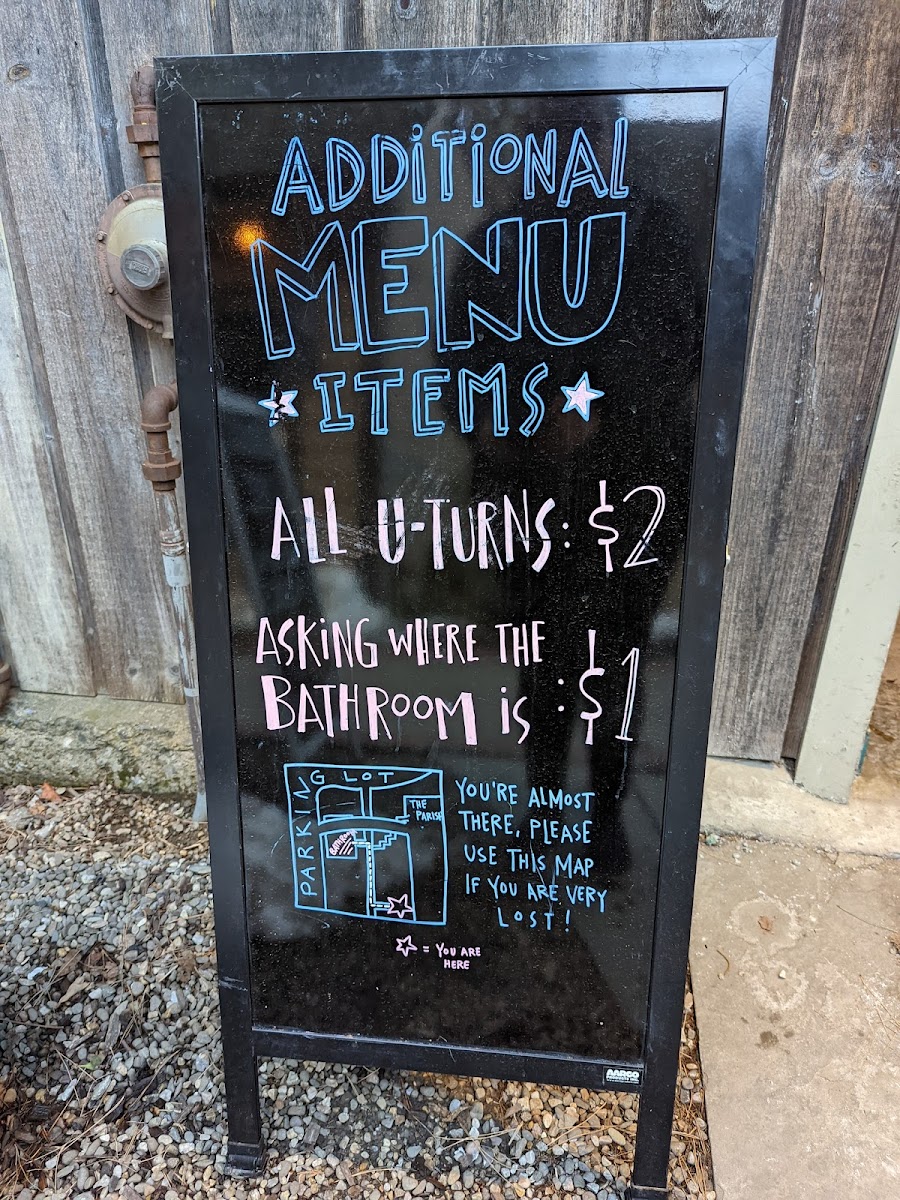 ADDITIONAL
MENU
ITEMS
ALL U-TURNS: $2
ASKING WHERE THE
BATHROOM IS : $1
PARKING LOT
THE
PARISH
BATHROOM
YOU'RE ALMOST
THERE, PLEASE
USE THIS MAP
IF YOU ARE VERY
LOST!
= YOU ARE
HERE
AARCO